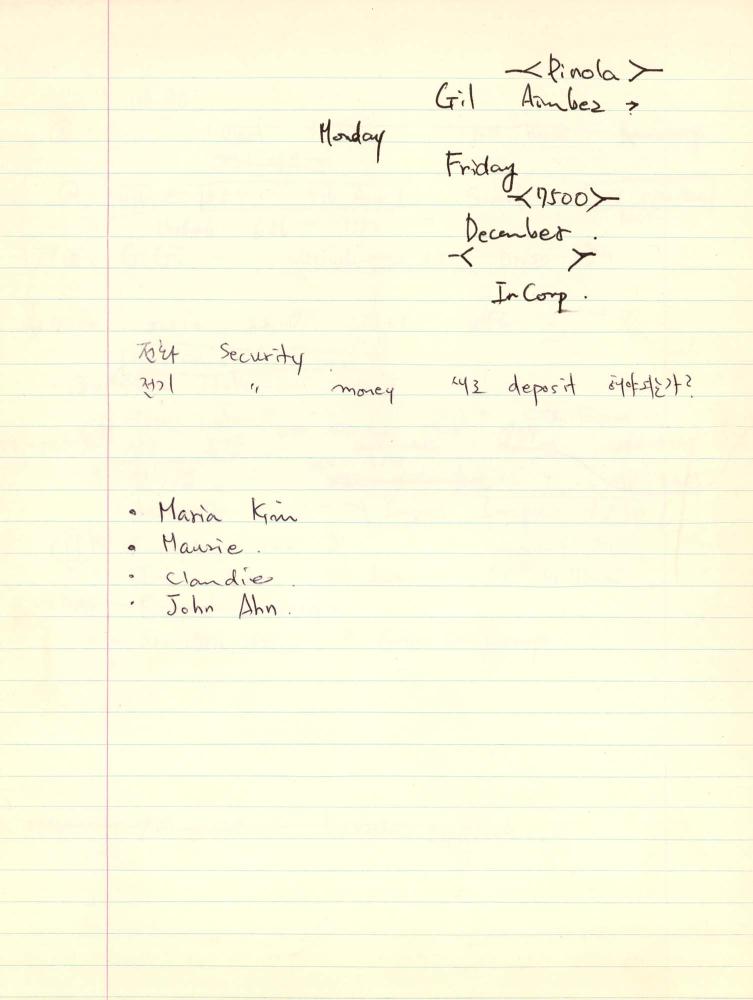 Pinola
Gil Aimbez ?
Monday
Friday
7500
December .
InCorp .
전화 Security
전기 〃 money 새로 deposit 해야되는가?
• Maria Kim
• Maurie .
• Claudie .
• John Ahn .